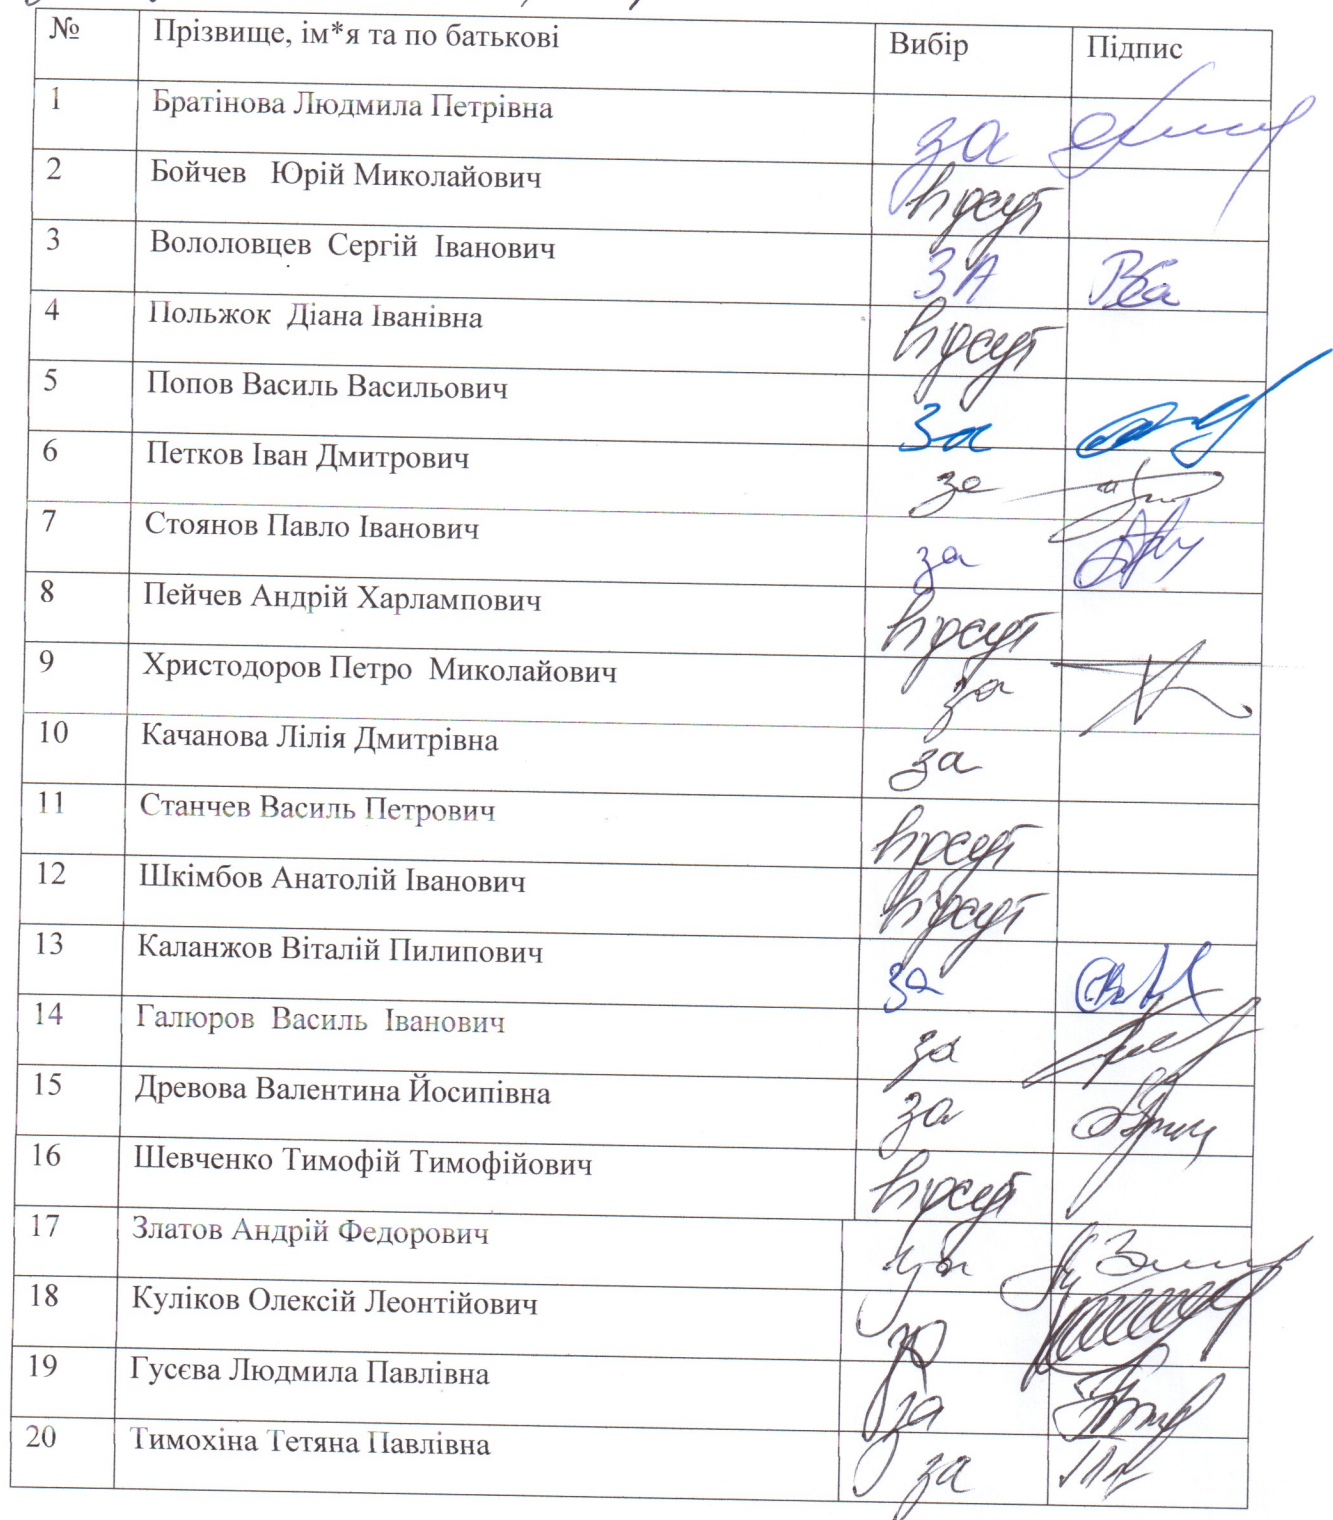 № Прізвище, ім*я та по батькові Вибір Підпис
1 Братінова Людмила Петрівна за
2 Бойчев Юрій Миколайович
3 Вололовцев Сергій Іванович ЗА
4 Польжок Діана Іванівна
5 Попов Василь Васильович За
6 Петков Іван Дмитрович за
7 Стоянов Павло Іванович за
8 Пейчев Андрій Харлампович
9 Христодоров Петро Миколайович за
10 Качанова Лілія Дмитрівна за
11 Станчев Василь Петрович
12 Шкімбов Анатолій Іванович
13 Каланжов Віталій Пилипович за
14 Галюров Василь Іванович за
15 Древова Валентина Йосипівна за
16 Шевченко Тимофій Тимофійович
17 Златов Андрій Федорович
18 Куліков Олексій Леонтійович за
19 Гусєва Людмила Павлівна за
20 Тимохіна Тетяна Павлівна за